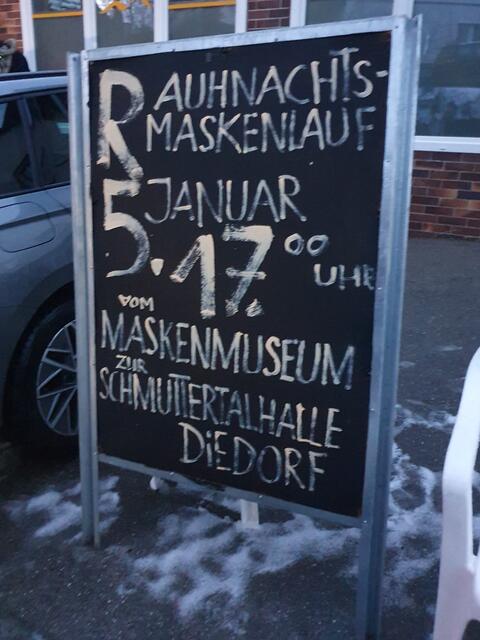 RAUHNACHTS-
MASKENLAUF
5. JANUAR
17.00 UHR
VOM
MASKENMUSEUM
ZUR
SCHMUTTERTALHALLE
DiEDORF